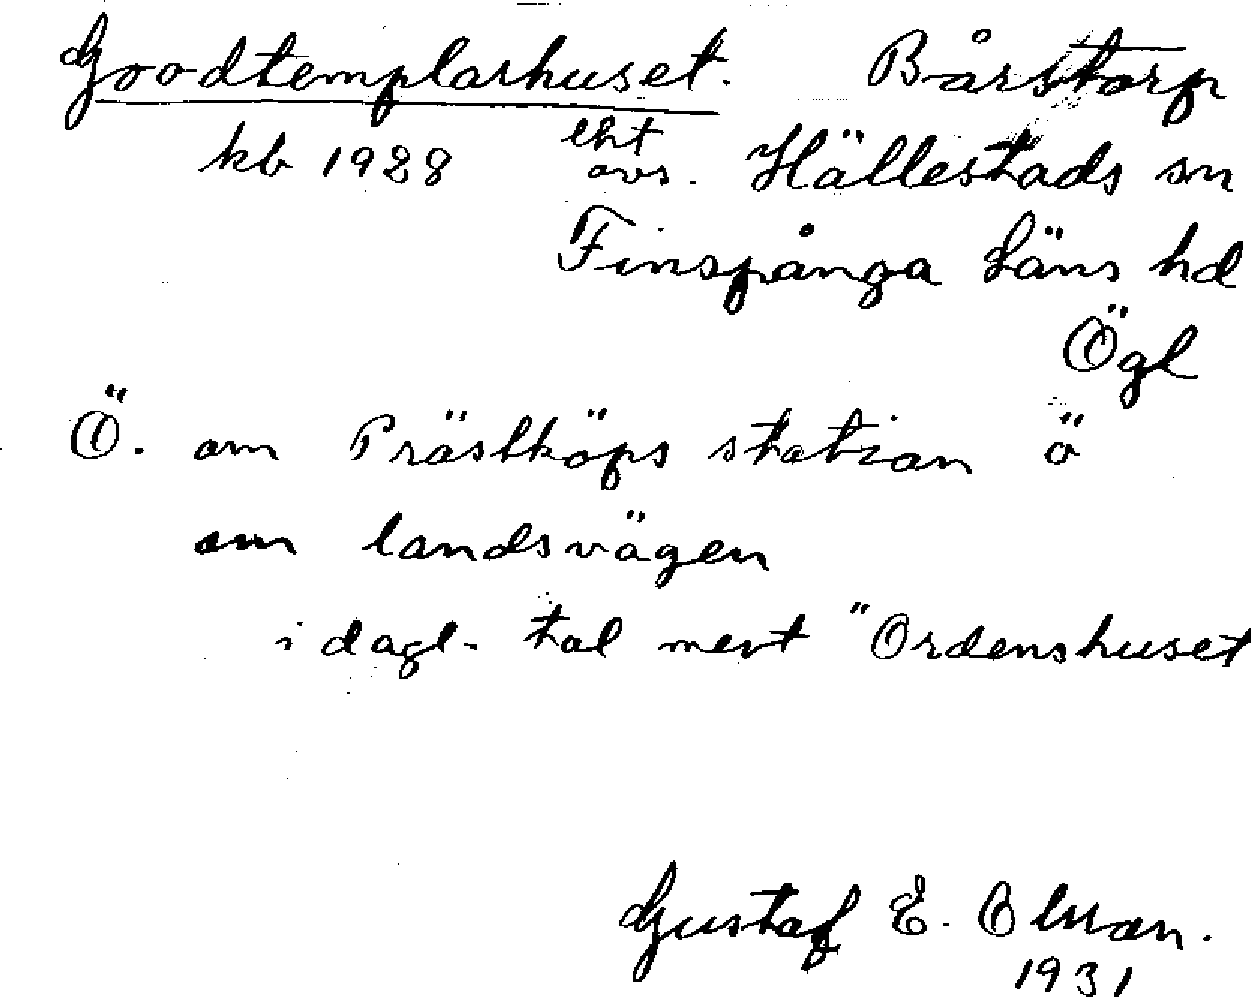 Goodtemplarhuset. Bårstorp
kb 1928 lht avs. Hällestads sn
Finspånga läns hd
Ögl
Ö. om Prästköps station ö
om landsvägen
i dagl. tal mest "Ordenshuset
Gustaf E. Olsson.
1931